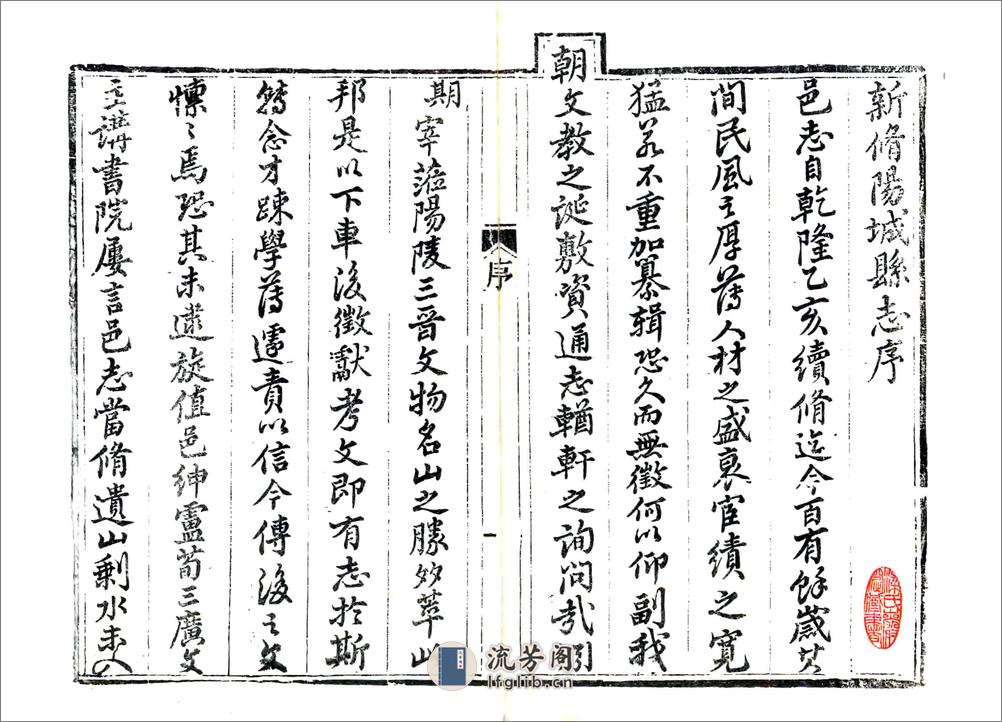 新脩陽城縣志序
邑志自乾隆乙亥續脩迄今百有餘歲其
間民風之厚薄人材之盛衰宦績之寬
猛若不重加纂輯恐久而無徵何以仰副我
朝文教之誕敷資通志輶軒之詢問哉
序
一
期宰蒞陽陵三晉文物名山之勝效萃山
邦是以下車後徵獻考文即有志於斯
轉念才踈學薄遽責以信今傳後之文
懍〻焉恐其未逮旋值邑紳盧荀三廣文
主講書院屢言邑志當脩遺山剩水未入
流芳阁
lfglib.cn